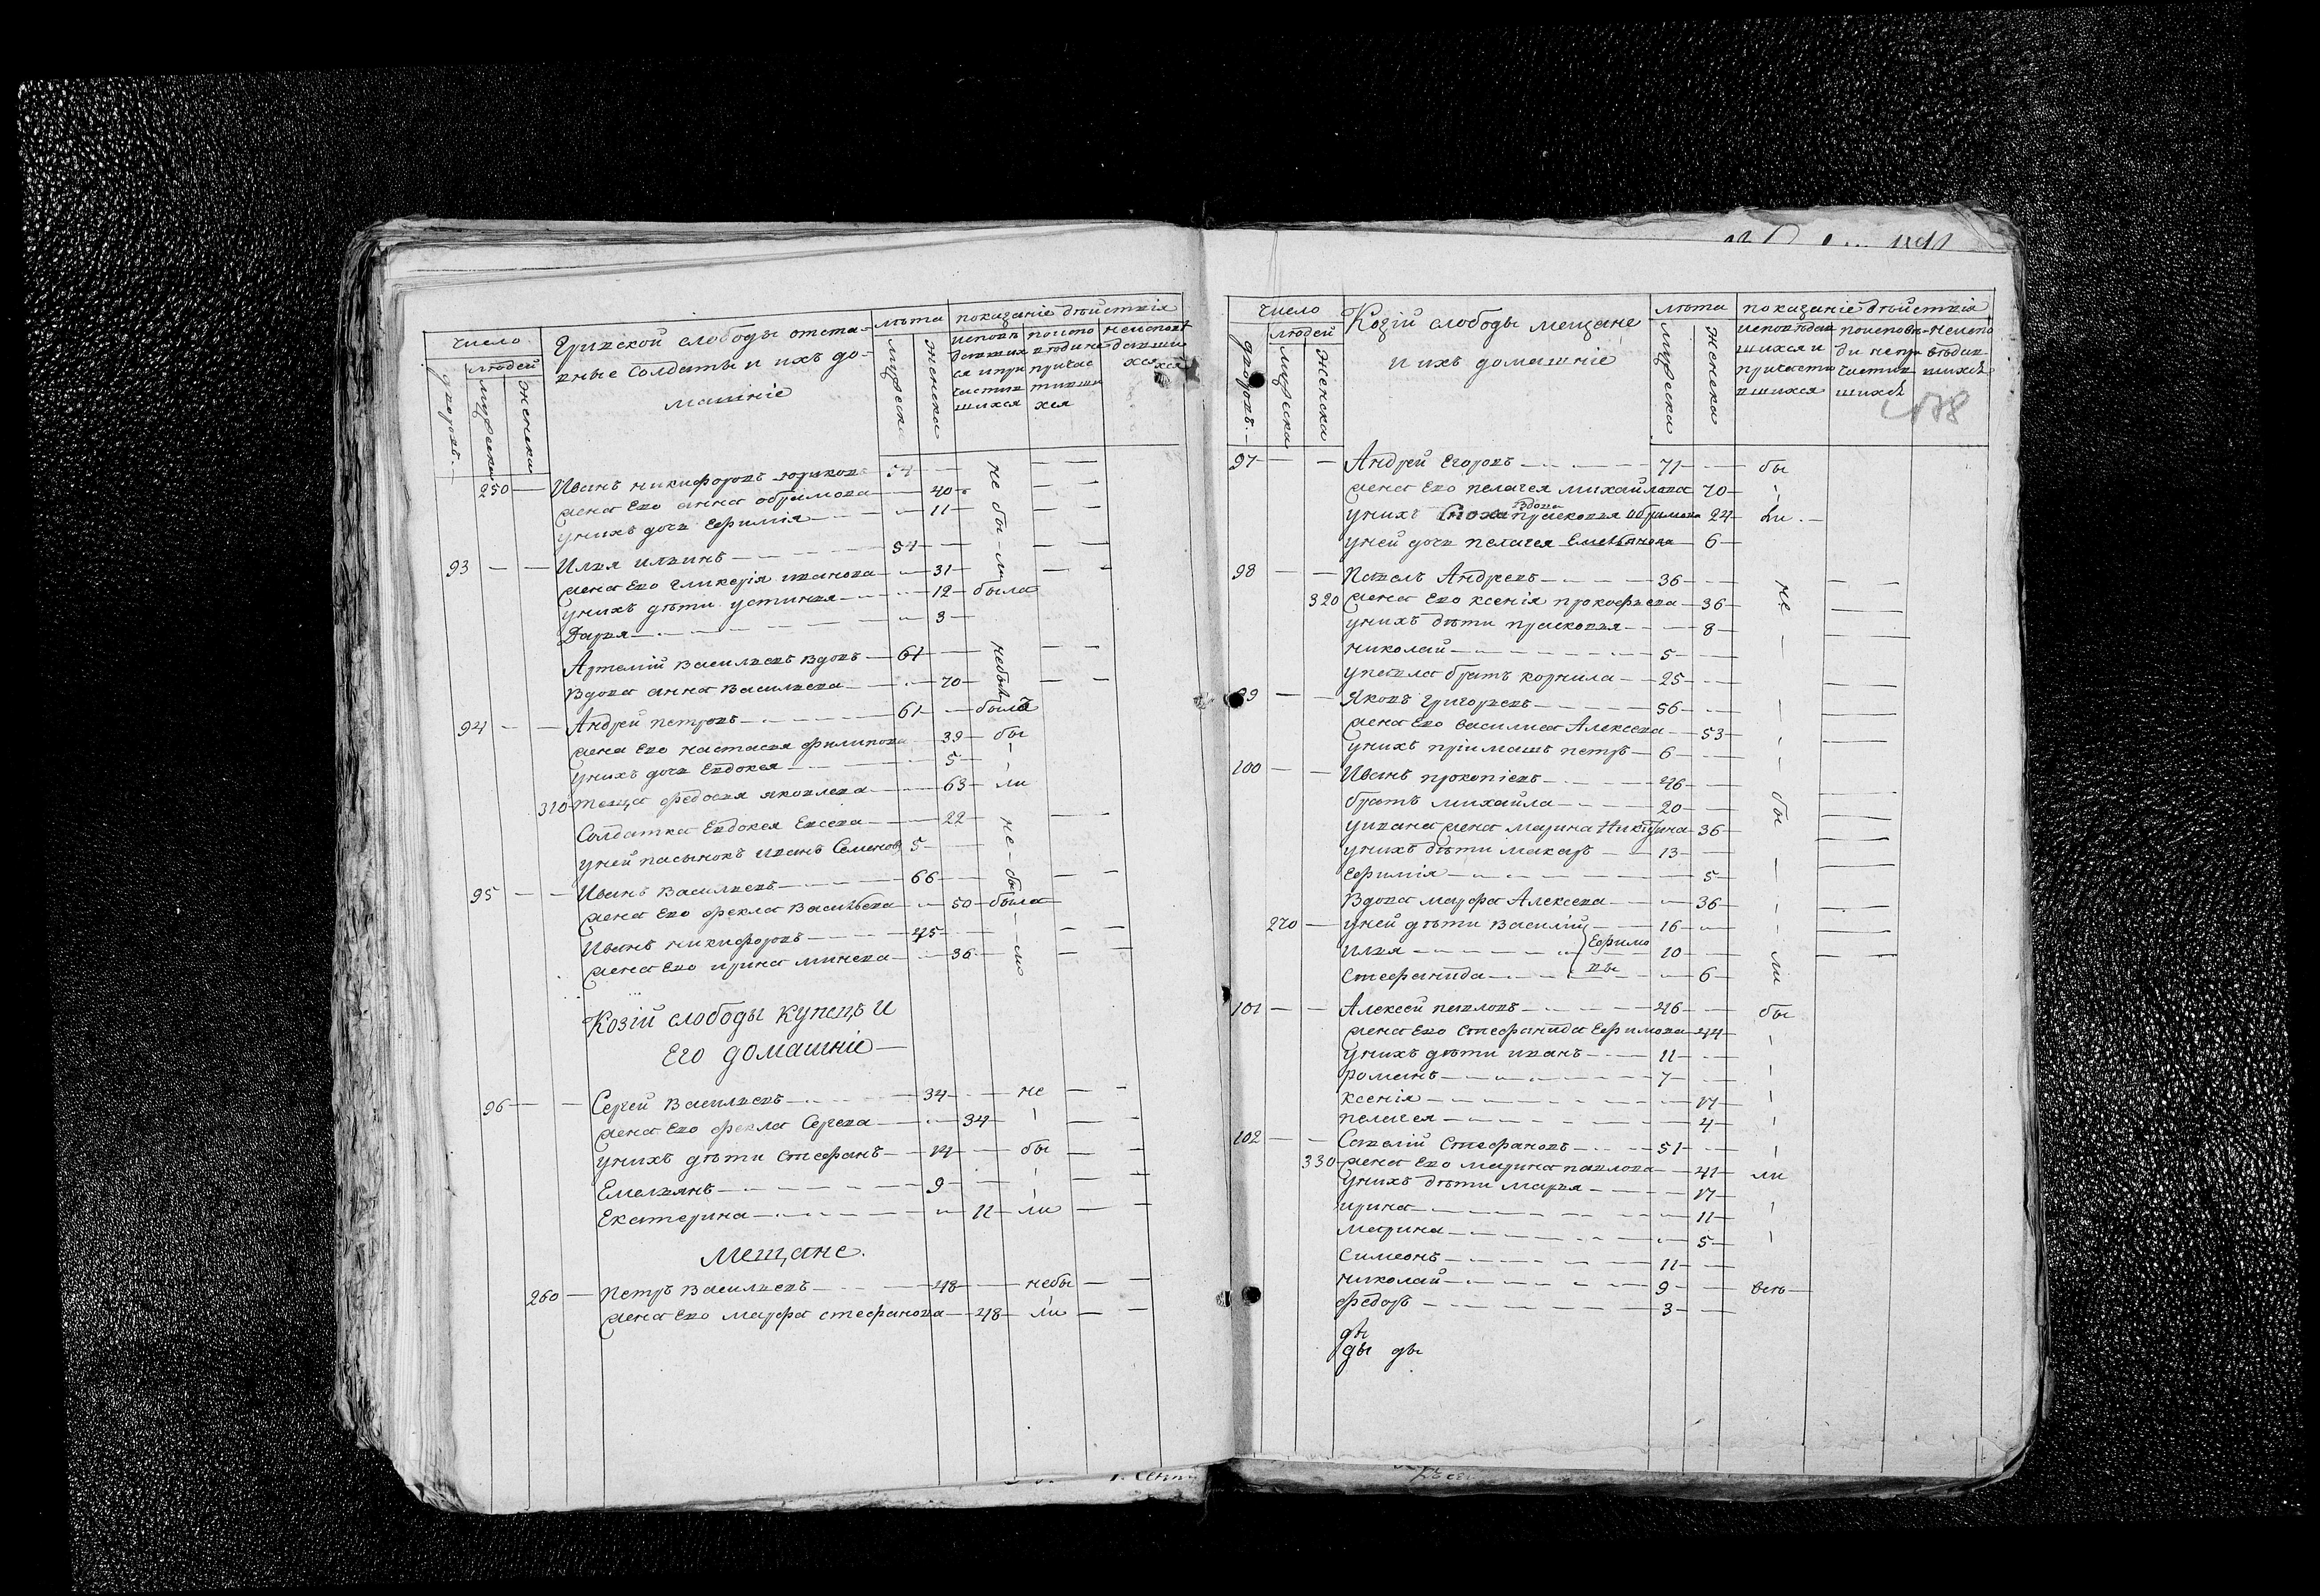 число
людей
дворовъ
мужеска
женска
Грицкой слободы отста-
вные Солдаты и ихъ до-
машніе
лѣта
мужеска
женска
показаніе дѣйствія
исповѣ
давших
ся и при
частив
шихся
Иванъ никифоровъ 54
250 жена Его анна абрамова 40
унихъ дочь Ефимія 11
93 Илья ильинъ 54
жена Его гликерія иванова 31
унихъ дѣти устинья 12 была
Дарья 3
Артемій васильевъ вдовъ 61
вдова анна васильева 70
94 Андрей петровъ 61 была
жена Его настасья филипова 39 бы
унихъ дочь Евдокея 5
310 теща федосья яковлева 63 ли
Солдатка Евдокея Евсева 22
уней пасынокъ иванъ Семеновъ 5
95 Иванъ васильевъ 66
жена Его фекла васильева 50 была
Иванъ никифоровъ 45
жена Его ирина минеева 36
не бы ли
небыли
не бы ли
Козій слободы купецъ и
Его домашніе
96 Сергей васильевъ 34 не
жена Его фекла Сергеева 34
унихъ дѣти стефанъ 14 бы
Емельянъ 9
Екатерина 11 ли
Мещане.
Петръ васильевъ 48 небы
260 жена Его марфа стефанова 48 ли
число
людей
дворовъ.
мужеска
женска
Козій слободы мещане
и ихъ домашніе
лѣта
мужеска
женска
показаніе дѣйствія
исповѣдав
шихся и
причасти
вшихся
поисповѣ
ди непр
частив
шихся
неиспо
вѣдав
шихся
178
97 Андрей Егоровъ 71 бы
жена Его пелагея михайлова 70
вдова
унихъ Сноха прасковья абрамова 24 ли.
уней дочь пелагея Емельянова 6
98 Павелъ Андреевъ 36 не
320 жена Его ксенія прокофьева 36
унихъ дѣти прасковья 8
николай 5
упавла братъ корнила 25
99 Яковъ григорьевъ 56
жена Его василиса Алексеева 53
унихъ пріимашъ петръ 6
100 Иванъ прокопіевъ 46
братъ михайла 20 бы
уивана жена марина никитина 36
унихъ дѣти макаръ 13
Ефимія 5
Вдова марфа Алексеева 36
270 уней дѣти василій 16
илья Ефимо 10
вы
стефанида 6 ли
101 Алексей павловъ 46 бы
жена Его стефанида Ефимова 44
унихъ дѣти иванъ 11
романъ 7
ксенія 14
пелагея 4
102 Савелій стефановъ 51
330 жена Его марина павлова 41 ли
унихъ дѣти марья 14
ирина 11
марина 5
симеонъ 11
николай 9
федоръ 3
ды
ды ды